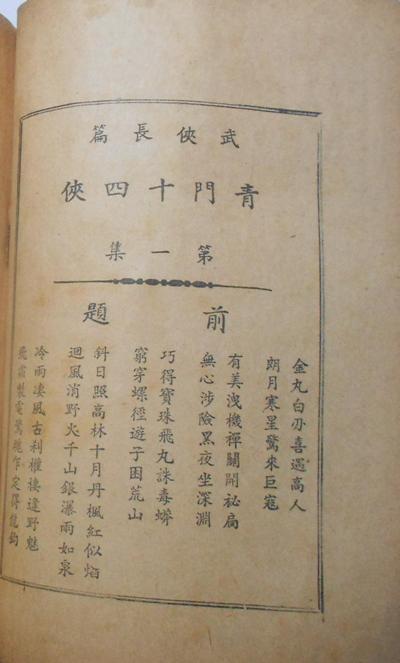 武俠長篇
青門十四俠
第一集
前題
金丸白刃喜遇高人
朗月寒星驚來巨寇
有美洩機禪關開祕扃
無心涉險黑夜坐深淵
巧得寶珠飛丸誅毒蟒
窮穿螺徑遊子困荒山
斜日照高林十月丹楓紅似焰
迴風消野火千山銀瀑雨如泉
冷雨凄風古刹權棲逢野魅
飛霜掣電驚魂乍定得龍鈎